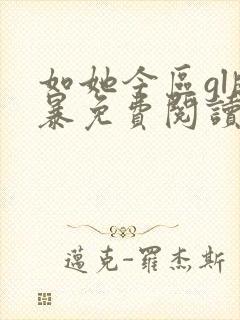 如她今區gl
暴免費閱讀
邁克-羅杰斯